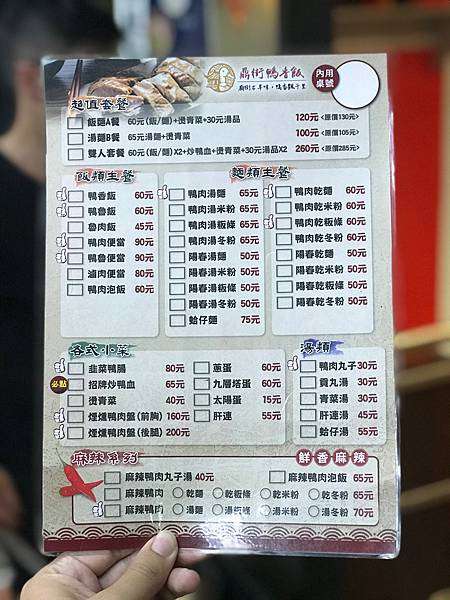 鼎街鴨香飯
內用桌號
超值套餐
飯麵A餐 60元(飯/麵)+燙青菜+30元湯品 120元<原價130元>
湯麵B餐 65元湯麵+燙青菜 100元<原價105元>
雙人套餐 60元(飯/麵)X2+炒鴨血+燙青菜+30元湯品X2 260元<原價285元>
飯類主餐
鴨香飯 60元
鴨魯飯 60元
魯肉飯 45元
鴨肉便當 90元
鴨魯便當 90元
滷肉便當 80元
鴨肉泡飯 60元
麵類主餐
鴨肉湯麵 65元
鴨肉湯米粉 65元
鴨肉湯粄條 65元
鴨肉湯冬粉 65元
陽春湯麵 50元
陽春湯米粉 50元
陽春湯粄條 50元
陽春湯冬粉 50元
蛤仔麵 75元
鴨肉乾麵 60元
鴨肉乾米粉 60元
鴨肉乾粄條 60元
鴨肉乾冬粉 60元
陽春乾麵 50元
陽春乾米粉 50元
陽春乾粄條 50元
陽春乾冬粉 50元
各式小菜
韭菜鴨腸 80元
必點 招牌炒鴨血 65元
燙青菜 40元
煙燻鴨肉盤(前胸) 160元
煙燻鴨肉盤(後腿) 200元
蔥蛋 60元
九層塔蛋 60元
太陽蛋 15元
肝連 55元
湯類
鴨肉丸子 30元
貢丸湯 30元
青菜湯 30元
肝連湯 45元
蛤仔湯 55元
麻辣系列
鮮香麻辣
麻辣鴨肉丸子湯 40元 麻辣鴨肉泡飯 65元
麻辣鴨肉 乾麵 乾粄條 乾米粉 乾冬粉 65元
麻辣鴨肉 湯麵 湯粄條 湯米粉 湯冬粉 70元